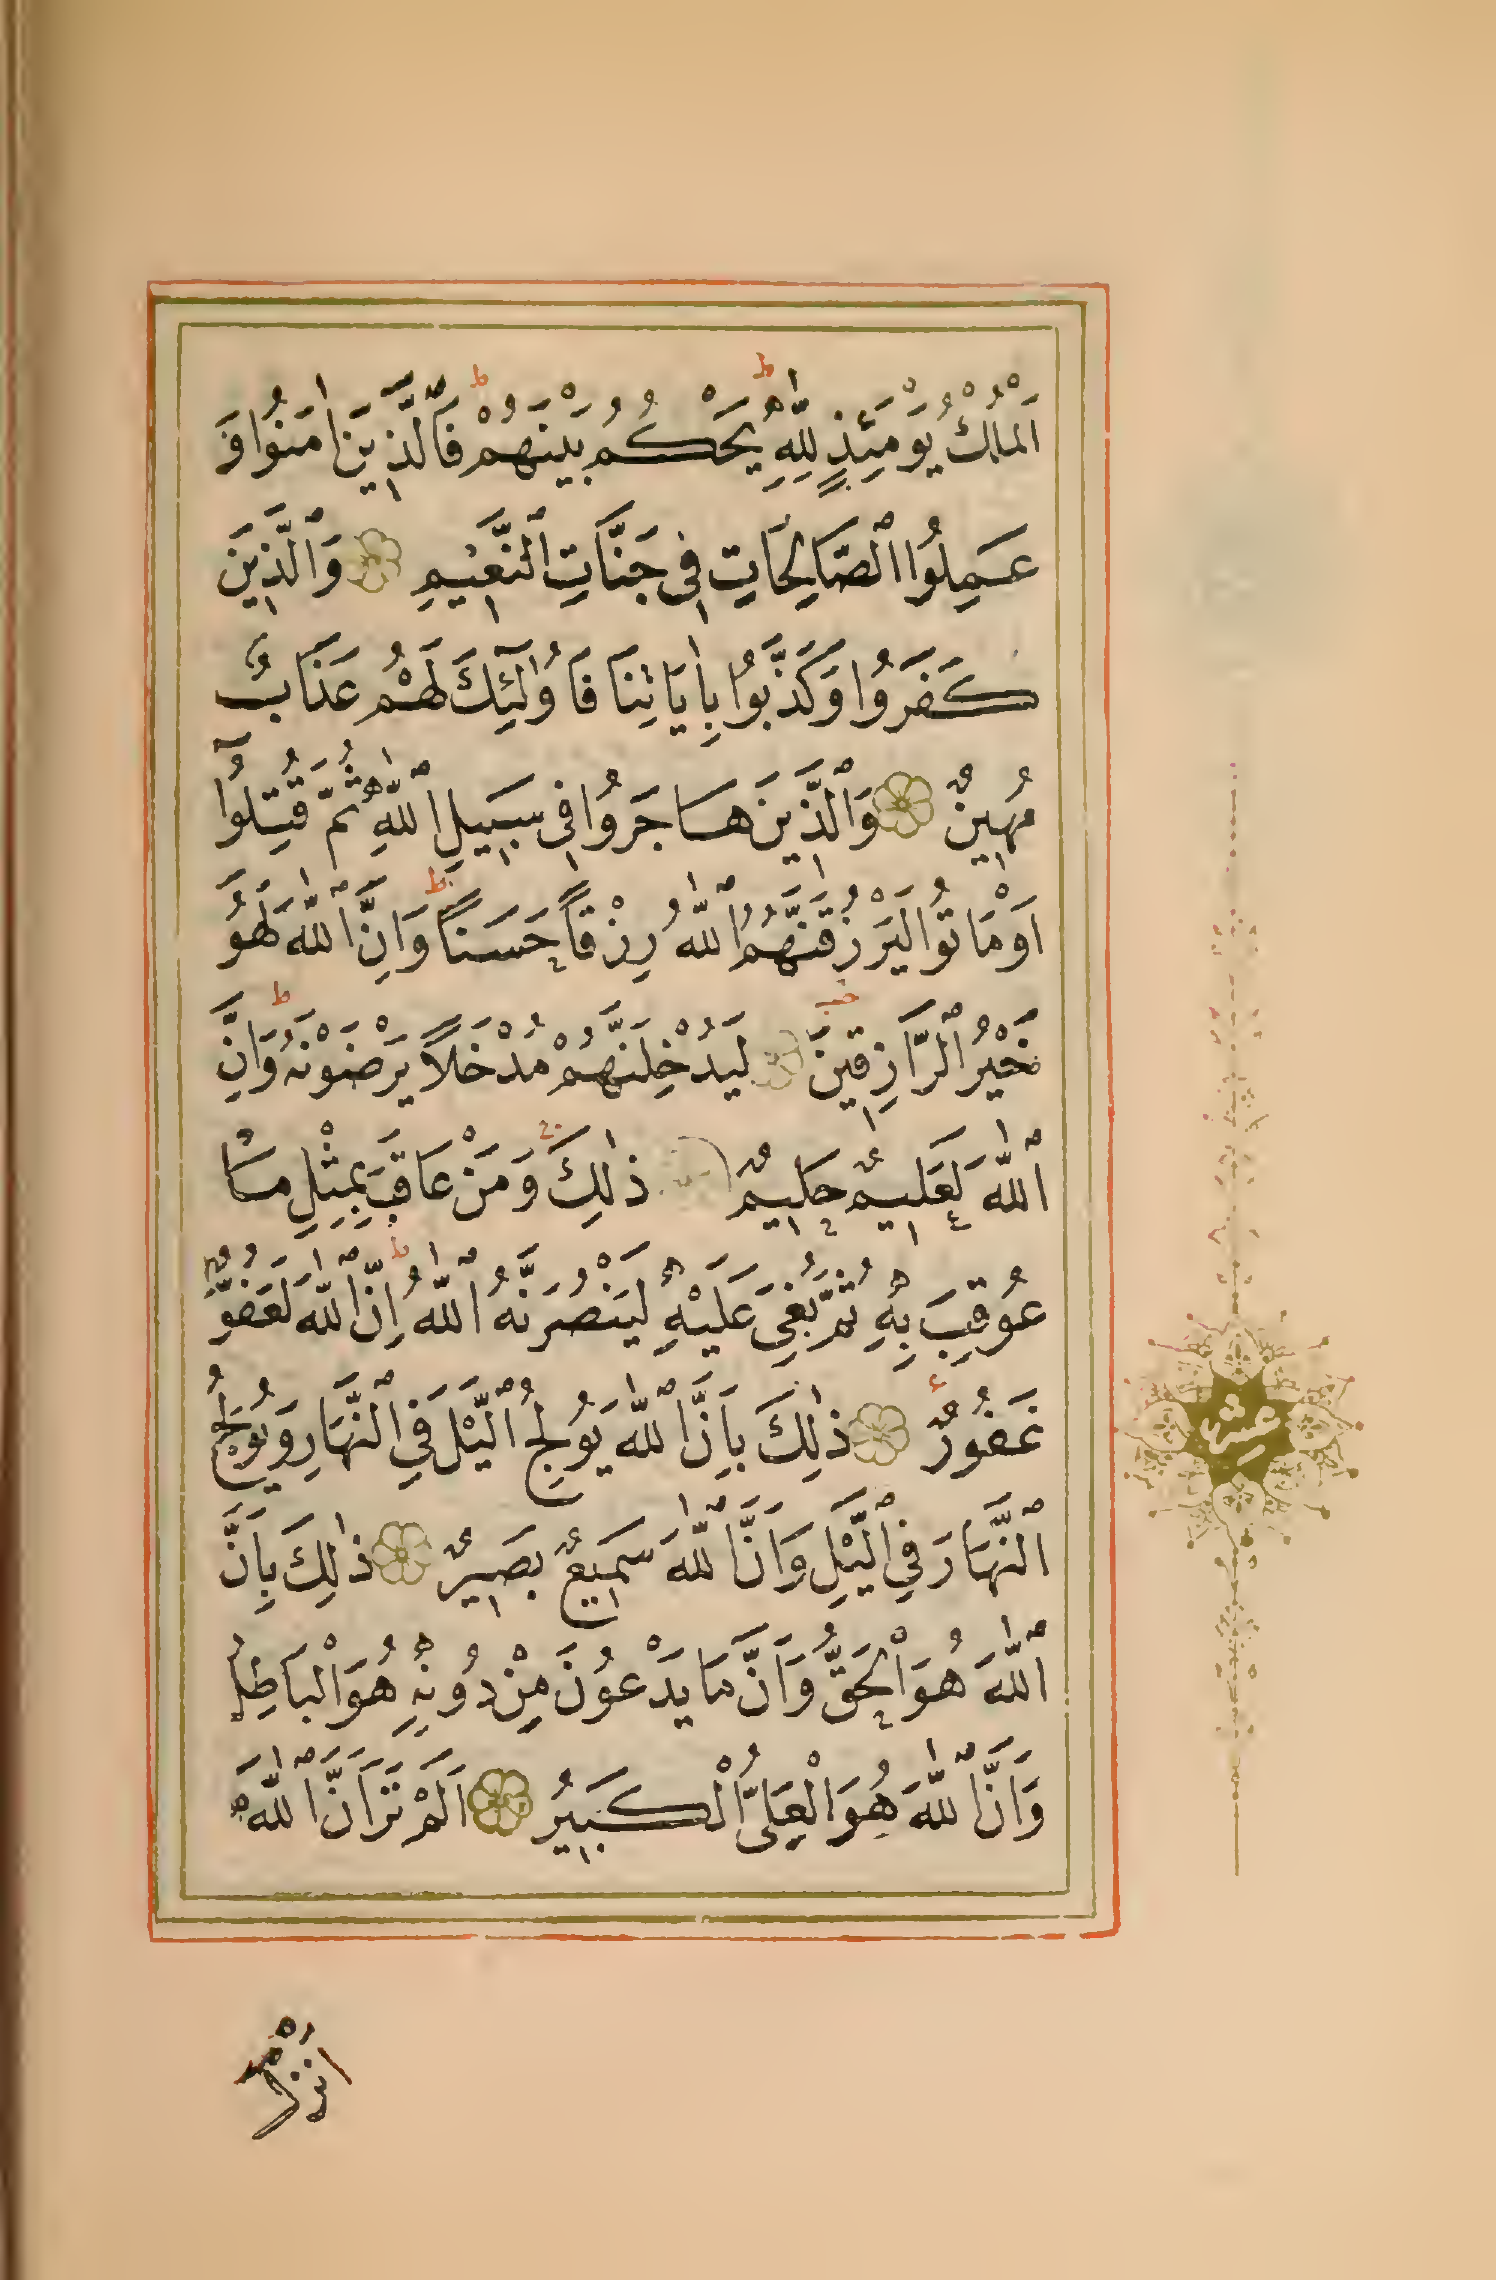 اَلْمُلْكُ يَوْمَئِذٍ لِلّٰهِ يَحْكُمُ بَيْنَهُمْ فَالَّذِينَ اٰمَنُوا وَ
عَمِلُوا الصَّالِحَاتِ فِي جَنَّاتِ النَّعِيمِ وَالَّذِينَ
كَفَرُوا وَكَذَّبُوا بِاٰيَاتِنَا فَاُولٰٓئِكَ لَهُمْ عَذَابٌ
مُهِينٌ وَالَّذِينَ هَاجَرُوا فِي سَبِيلِ اللّٰهِ ثُمَّ قُتِلُٓوا
اَوْ مَاتُوا لَيَرْزُقَنَّهُمُ اللّٰهُ رِزْقًا حَسَنًا وَاِنَّ اللّٰهَ لَهُوَ
خَيْرُ الرَّازِقِينَ لَيُدْخِلَنَّهُمْ مُدْخَلًا يَرْضَوْنَهُ وَاِنَّ
اللّٰهَ لَعَلِيمٌ حَلِيمٌ ذٰلِكَ وَمَنْ عَاقَبَ بِمِثْلِ مَا
عُوقِبَ بِهِ ثُمَّ بُغِيَ عَلَيْهِ لَيَنْصُرَنَّهُ اللّٰهُ اِنَّ اللّٰهَ لَعَفُوٌّ
غَفُورٌ ذٰلِكَ بِاَنَّ اللّٰهَ يُولِجُ الَّيْلَ فِي النَّهَارِ وَيُولِجُ
النَّهَارَ فِي الَّيْلِ وَاَنَّ اللّٰهَ سَمِيعٌ بَصِيرٌ ذٰلِكَ بِاَنَّ
اللّٰهَ هُوَ الْحَقُّ وَاَنَّ مَا يَدْعُونَ مِنْ دُونِهِ هُوَ الْبَاطِلُ
وَاَنَّ اللّٰهَ هُوَ الْعَلِيُّ الْكَبِيرُ اَلَمْ تَرَ اَنَّ اللّٰهَ
عشر
اَنْزَلَ